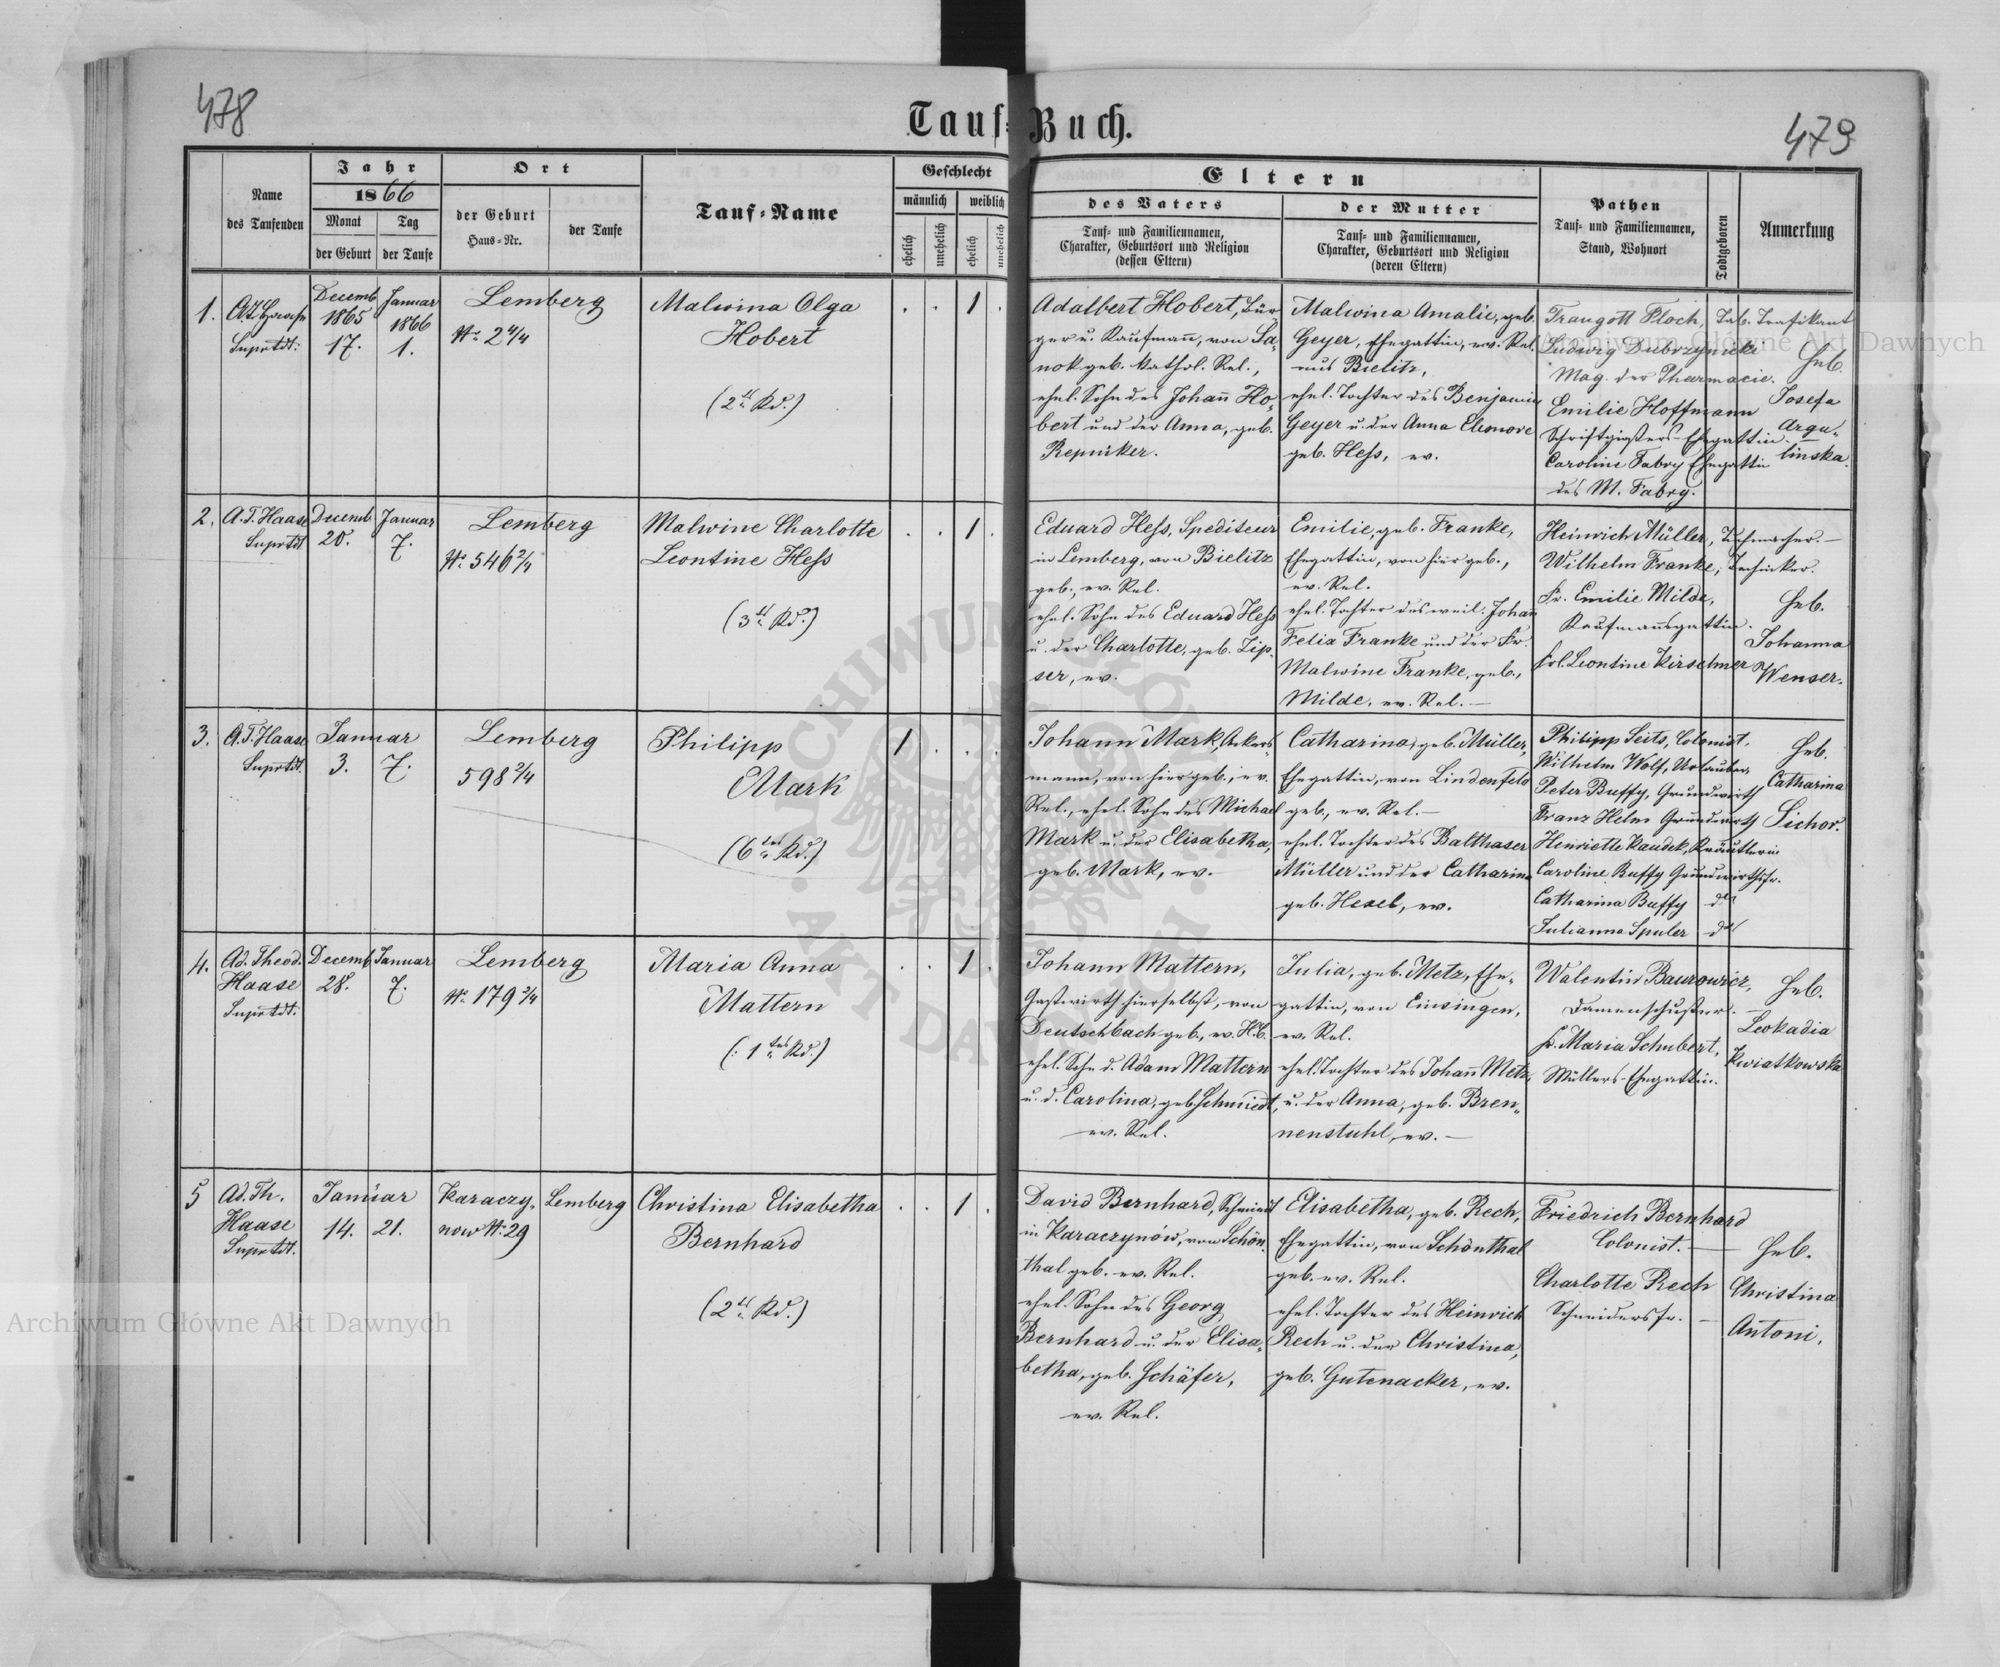 478
479
Tauf-Buch.
Name
des Taufenden
Jahr
1866
Monat
der Geburt
Tag
der Taufe
Ort
der Geburt
Haus-Nr.
der Taufe
Tauf-Name
Geschlecht
männlich
weiblich
ehelich
unehelich
ehelich
unehelich
Eltern
des Vaters
Tauf- und Familiennamen,
Charakter, Geburtsort und Religion
(dessen Eltern)
der Mutter
Tauf- und Familiennamen,
Charakter, Geburtsort und Religion
(deren Eltern)
Pathen
Tauf- und Familiennamen,
Stand, Wohnort
Todtgeboren
Anmerkung
1.
A.T. Haase
Suprtdt.
Decemb
1865
17.
Januar
1866
1.
Lemberg
No 2 4/4
Malwina Olga
Hobert
(2tes Kd.)
1
Adalbert Hobert, Bür-
ger u. Kaufmann, von Sa-
nok geb. kathol. Rel.,
ehel. Sohn des Johann Ho-
bert und der Anna, geb.
Malwina Amalie, geb.
Geyer, Ehegattin, ev. Rel.
aus Bielitz,
ehel. Tochter des Benjamin
Geyer u. der Anna Eleonore
geb. Hess, ev.
Traugott Ploch, Tab. Trafikant
Ludwig Dubrzynicki
Mag. der Pharmacie.
Emilie Hoffmann
Schriftgießers-Ehegattin.
Caroline Fabry Ehegattin
des M. Fabry.
Heb.
Josefa
Argu-
linska.
2.
A.T. Haase
Suprtdt
Decemb
20.
Januar
7.
Lemberg
No 546 2/4
Malwine Charlotte
Leontine Hess
(3tes Kd.)
1
Eduard Hess, Spediteur
in Lemberg, von Bielitz
geb., ev. Rel.
ehel. Sohn des Eduard Hess
u. der Charlotte, geb. Zip-
ser, ev.
Emilie, geb. Franke,
Ehegattin, von hier geb.,
ev. Rel.
ehel. Tochter des weil. Johann
Felix Franke und der Fr.
Malwine Franke, geb.,
Milde, ev. Rel. —
Heinrich Müller, Tuchmacher. —
Wilhelm Franke, Techniker.
Fr. Emilie Milde,
Kaufmannsgattin.
Frl. Leontine Kirschner
Heb.
Johanna
Wenser.
3.
A.T. Haase
Suprtdt.
Januar
3. 7.
Lemberg
598 2/4
Philipp
Mark
(6tes Kd.)
1
Johann Mark, Ackers-
mann, von hier geb., ev.
Rel., ehel. Sohn des Michael
Mark u. der Elisabetha,
geb. Mark, ev.
Catharina, geb. Müller,
Ehegattin, von Lindenfeld
geb., ev. Rel. —
ehel. Tochter des Balthaser
Müller und der Catharina
geb. Hexel, ev.
Philipp Seits, Colonist.
Wilhelm Wolf, Urlauber,
Peter Buffy, Grundwirth
Franz Helm Grundwirth
Henriette Kaudek, Kräutlerin
Caroline Buffy Grundwirthsfr.
Catharina Buffy dto
Julianna Spuler dto
Heb.
Catharina
Sichor.
4.
Ad. Theod.
Haase
Suprtdt.
Decemb
28.
Januar
7.
Lemberg
No 179 2/4
Maria Anna
Mattern
(: 1tes Kd.)
1
Johann Mattern,
Gastwirth hierselbst, von
Deutschbach geb., ev. H.C.
ehel. Sohn d. Adam Mattern
u. d. Carolina, geb. Schmiedt,
ev. Rel.
Julia, geb. Metz, Ehe-
gattin, von Einsingen,
ev. Rel.
ehel. Tochter des Johann Metz,
u. der Anna, geb. Bren-
nenstuhl, ev. —
Walentin Baurowicz,
Damenschuster.
Fr. Maria Schubert,
Müllers-Ehegattin.
Heb.
Leokadia
Kwiatkowska
5
Ad. Th.
Haase
Suprtdt.
Januar
14. 21.
Karaczy-
now No 29
Lemberg
Christina Elisabetha
Bernhard
(2tes Kd.)
1
David Bernhard, Schmied
in Karaczynów, von Schön-
thal geb. ev. Rel.
ehel. Sohn des Georg
Bernhard u. der Elisa-
betha, geb. Schäfer,
ev. Rel.
Elisabetha, geb. Rech,
Ehegattin, von Schönthal
geb. ev. Rel.
ehel. Tochter des Heinrich
Rech u. der Christina,
geb. Gutenacker, ev.
Friedrich Bernhard
Colonist. —
Charlotte Rech
Schneidersfr. —
Heb.
Christina
Antoni.
Archiwum Główne Akt Dawnych
Archiwum Główne Akt Dawnych